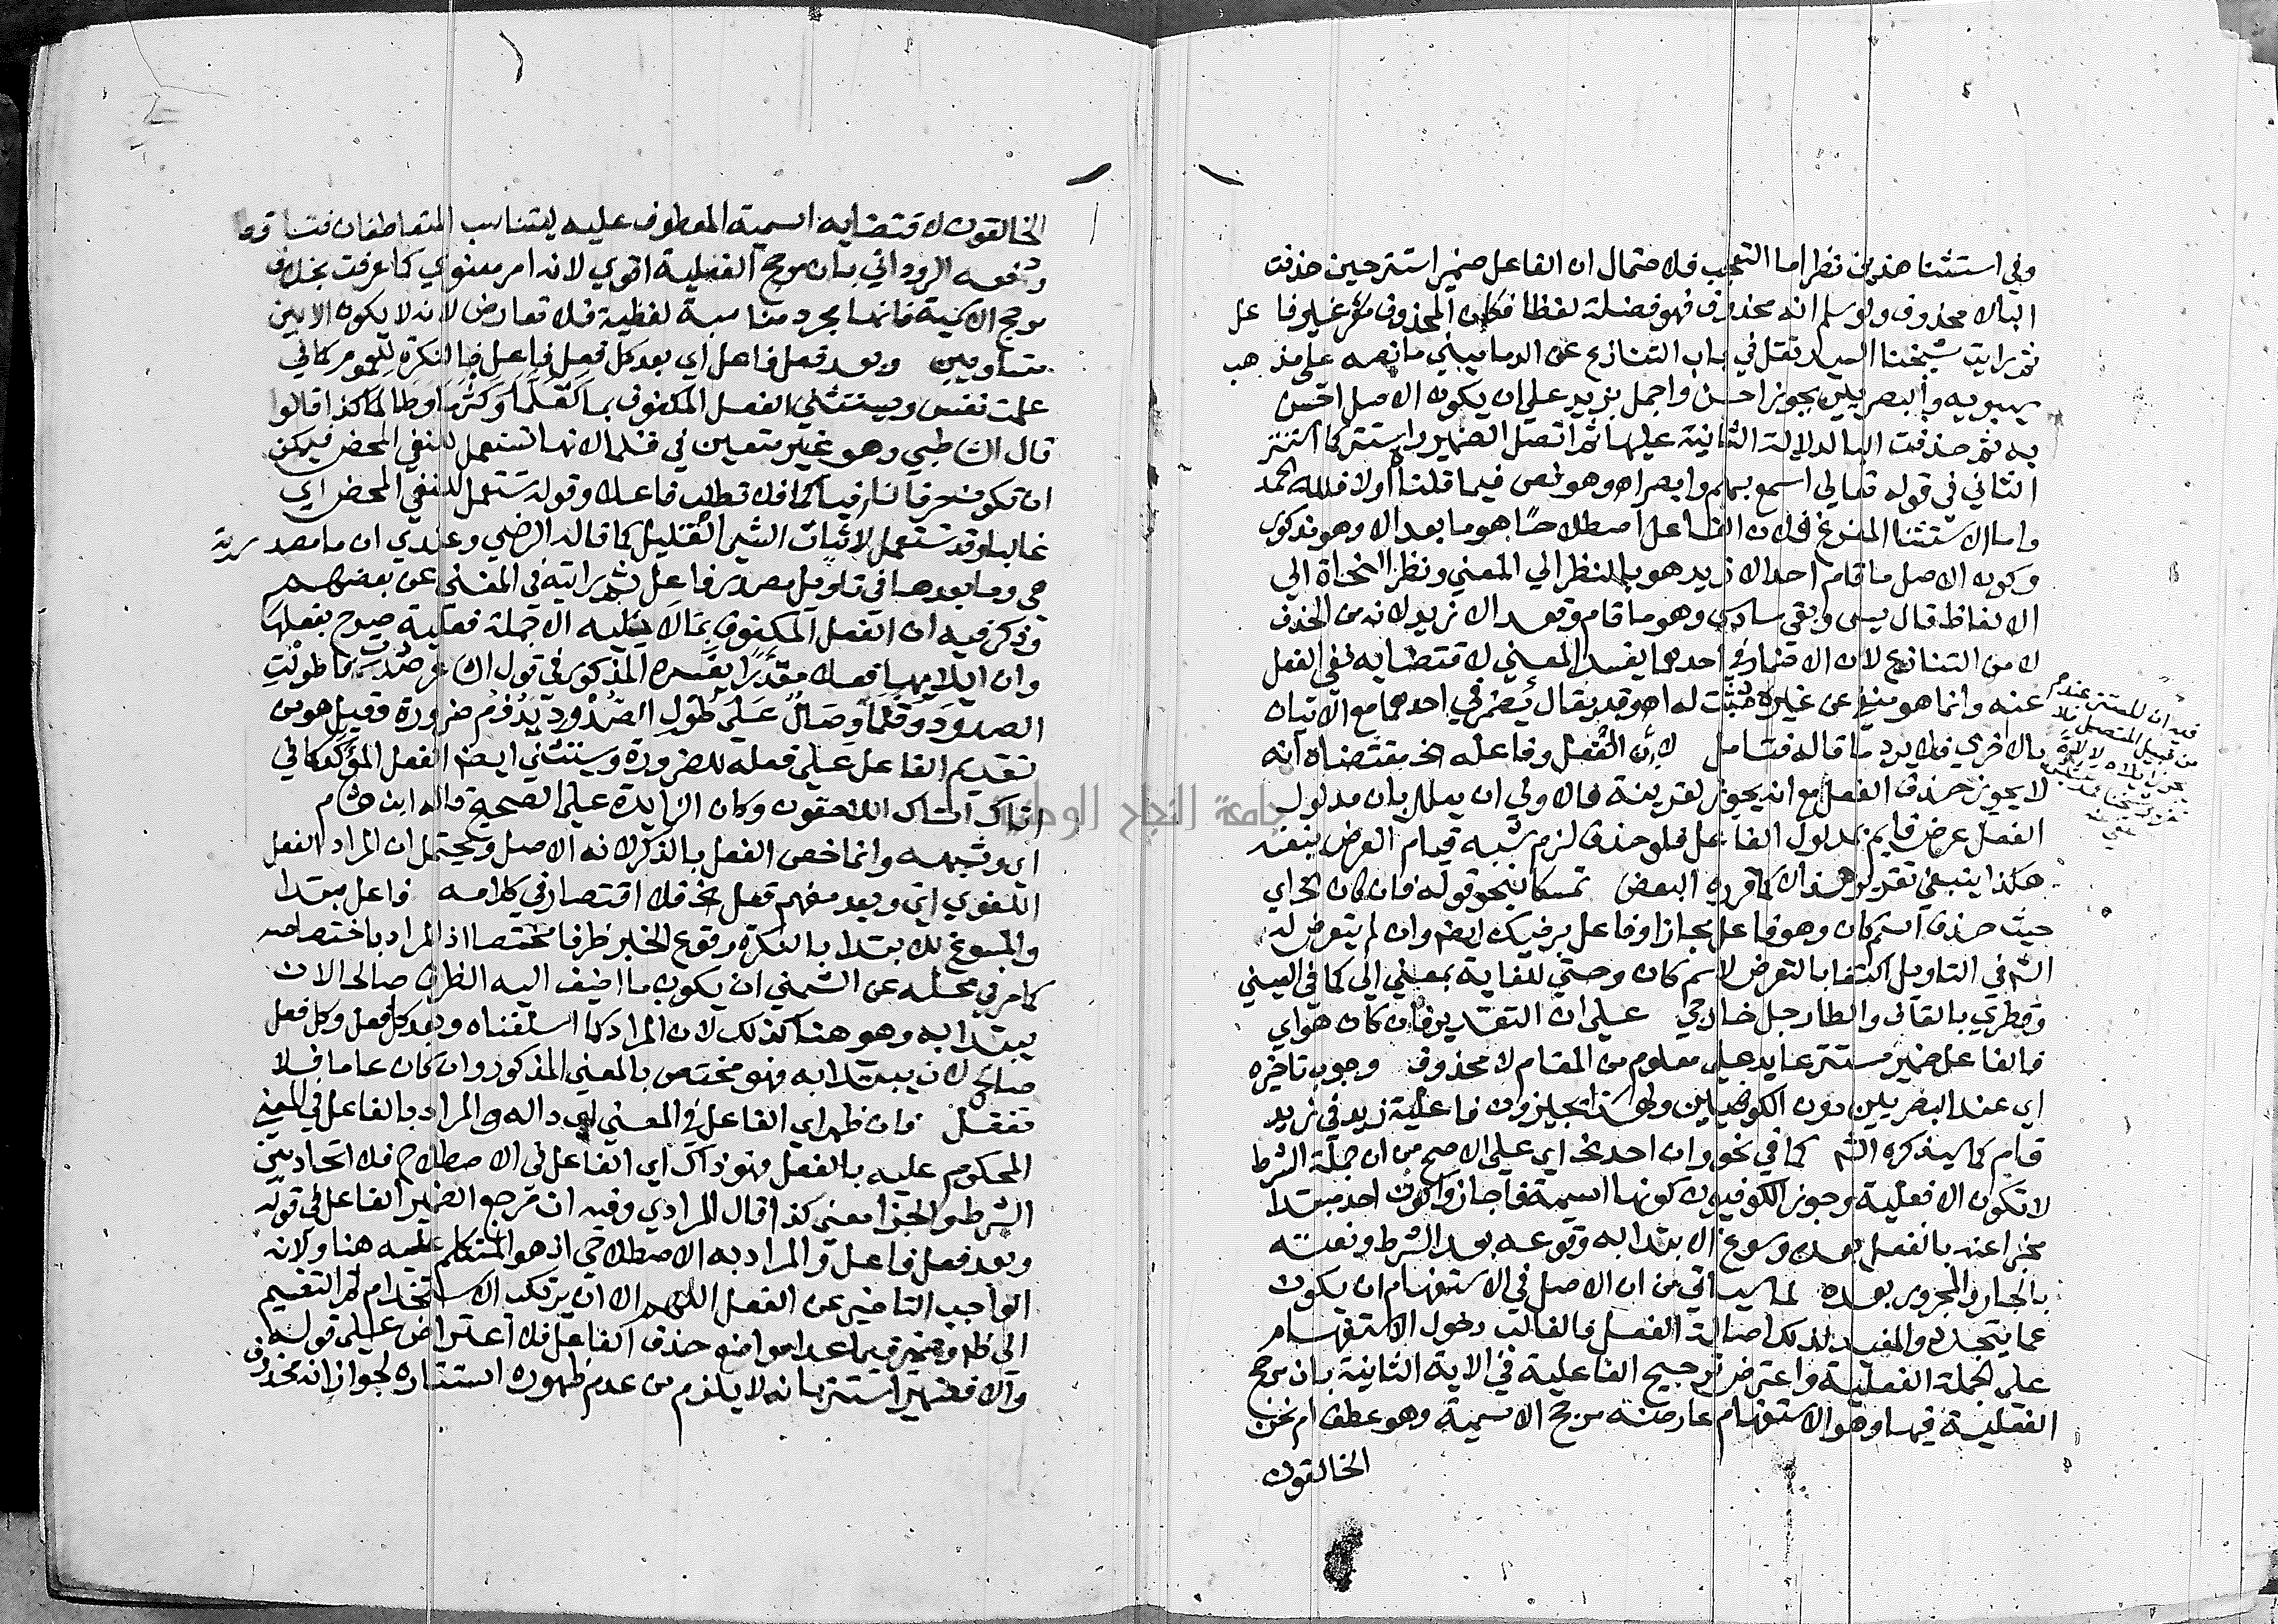 وفي استثنا هذين نظر اما التعجب فلاحتمال ان الفاعل ضمير استتر حين حذفت
الباء لا محذوف ولو سلم انه محذوف فهو فضلة لفظا فكان المحذوف غير فاعل
ثم رايت شيخنا السيد نقل في باب التنازع عن الدماميني ما نصه على مذهب
سيبويه والبصريين يجوز احسن واجمل بزيد على ان يكون الاصل احسن
به ثم حذفت البا لدلالة الثانية عليها ثم اتصل الضمير واستتر كما استتر
الثاني في قوله تعالي اسمع بهم وابصر اه وهو نص فيما قلنا اولا فلله الحمد
واما الاستثنا المفرغ فلان الفاعل اصطلاحا هو ما بعد الا وهو مذكور
وكون الاصل ما قام احد الا زيد هو بالنظر الي المعني ونظر النحاة الي
الالفاظ قال يس وبقي سادس وهو ما قام وقعد الا زيد لانه من الحذف
لا من التنازع لان الاضمار في احدهما يفسد المعني لاقتضايه نفي الفعل
عنه وانما هو منفي عن غيره مثبت له اه وقد يقال يضمر في احدهما مع الاتيان
بالا اخري فلا يرد ما قاله فتامل لان الفعل وفاعله الخ مقتضاه انه
لا يجوز حذف الفعل مع انه يجوز لقرينة فالاولي ان يعلل بان مدلول
الفعل عرض قايم بمدلول الفاعل فلو حذف لزم شبه قيام العرض بنفسه
هكذا ينبغي تقرير هذا كما قرره البعض تمسكا بنحو قوله فان كان الخ اي
حيث حذف اسم كان وهو فاعل مجازا وفاعل يرضيك ايضا وان لم يتعرض له
الش في التاويل اكتفا بالتعرض لاسم كان وحتي للغاية بمعني الي كما في العيني
وقطري بالقاف والطا رجل خارجي على ان التقدير فان كان هو اي
فالفاعل ضمير مستتر عايد على معلوم من المقام لا محذوف وجوب تاخيره
اي عند البصريين دون الكوفيين ولهذا يجيزون فاعلية زيد في زيد
قام كما سيذكره الش كما في نحو وان احد الخ اي على الاصح من ان جملة الشرط
لا تكون الا فعلية وجوز الكوفيون كونها اسمية فاجازوا كون احد مبتدا
مخبرا عنه بالفعل بعده وسوغ الابتدا به وقوعه بعد الشرط ونعته
بالجار والمجرور بعده لما سياتي من ان الاصل في الاستفهام ان يكون
عما يتجدد والمفيد لذلك اصالة الفعل فالغالب دخول الاستفهام
على الجملة الفعلية واعترض ترجيح الفاعلية في الاية الثانية بان مرجح
الفعلية فيها وهو الاستفهام عارضه مرجح الاسمية وهو عطف ام نحن
الخالقون
فيه ان المستتر عندهم
من قبيل المتصل فلا
الخالقون لاقتضايه اسمية المعطوف عليه ليتناسب المتعاطفان فتساقطا
ودفعه الروداني بان مرجح الفعلية اقوي لانه امر معنوي كما عرفت بخلاف
مرجح الاسمية فانها مجرد مناسبة لفظية فلا تعارض لانه لا يكون الا بين
متساويين وبعد فعل فاعل اي بعد كل فعل فاعل فالنكرة للعموم كما في
علمت نفس ويستثني الفعل المكفوف بما كقلما وكثر ما وطالما كذا قالوا
قال الشاطبي وهو غير متعين في قلما لانها تستعمل للنفي المحض فيمكن
ان تكون حرفا نافيا كما فلا تطلب فاعلا وقوله تستعمل للنفي المحض اي
غالبا وقد تستعمل لاثبات الشي القليل كما قاله الرضي وعندي ان ما مصدرية
هي وما بعدها في تاويل مصدر فاعل ثم رايته في المغني عن بعضهم
وذكر فيه ان الفعل المكفوف بما لا يليه الا جملة فعلية صرح بفعلها
وان ايلايها فعلا مقدرا يفسره المذكور في قول الشاعر صددت فاطولت
الصدود وقلما وصال على طول الصدود يدوم ضرورة وقيل هو من
تقديم الفاعل على فعله للضرورة ويستثني ايضا الفعل المؤكد كما في
اتاك اتاك اللاحقون وكان الزايدة على الصحيح قاله ابن هشام
اي وشبهه وانما خص الفعل بالذكر لانه الاصل ويحتمل ان المراد الفعل
اللغوي اي وبعد مفهم فعل الخ فلا اقتصار في كلامه فاعل مبتدا
والمسوغ للابتدا بالنكرة وقوع الخبر ظرفا مختصا اذ المراد باختصاصه
كما مر في محله عن الشمني ان يكون ما اضيف اليه الظرف صالحا لان
يبتدا به وهو هنا كذلك لان المراد كما اسلفناه وبعد كل فعل وكل فعل
صالح لان يبتدا به فهو مختص بالمعني المذكور وان كان عاما فلا
تغفل فان ظهر اي الفاعل في المعني اي داله والمراد بالفاعل في المعني
المحكوم عليه بالفعل فهو ذاك اي الفاعل في الاصطلاح فلا اتحاد بين
الشرط والجزا معني كذا قال المرادي وفيه ان مرجع الضمير الفاعل في قوله
وبعد فعل فاعل والمراد به الاصطلاحي اذ هو المتكلم عليه هنا ولانه
الواجب التاخير عن الفعل اللهم الا ان يرتكب الاستخدام ثم التقسيم
الي ظاهر وضمير فيما عدا مواضع حذف الفاعل فلا اعتراض على قوله
والا فضمير استتر بانه لا يلزم من عدم ظهوره استتاره لجواز انه محذوف
جامعة النجاح الوطنية